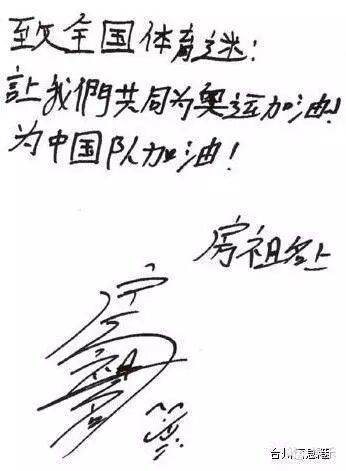 致全国体育迷：
让我們共同为奥运加油！
为中国队加油！
房祖名上
房祖名